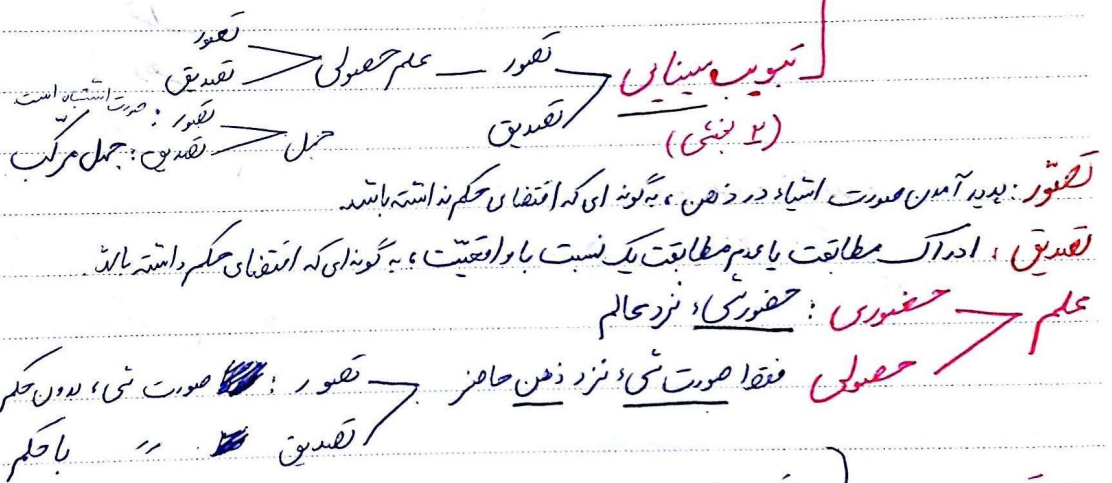 تبویب سینایی
(۲ بخشی)
تصور
تصدیق
علم حصولی
تصور
تصدیق
جهل
تصور : صورت اشتباه است
تصدیق : جهل مرکّب
تصّور : پدید آمدن صورت اشیاء در ذهن ، به گونه ای که اقتضای حکم نداشته باشد.
تصدیق : ادراک مطابقت یا عدم مطابقت یک نسبت با واقعیّت ، به گونه ای که اقتضای حکم داشته باشد.
علم
حضوری : حضور شیء نزد عالم
حصولی فقط صورت شیء نزد ذهن حاضر
تصور : صورت شیء بدون حکم
تصدیق 〃 با حکم